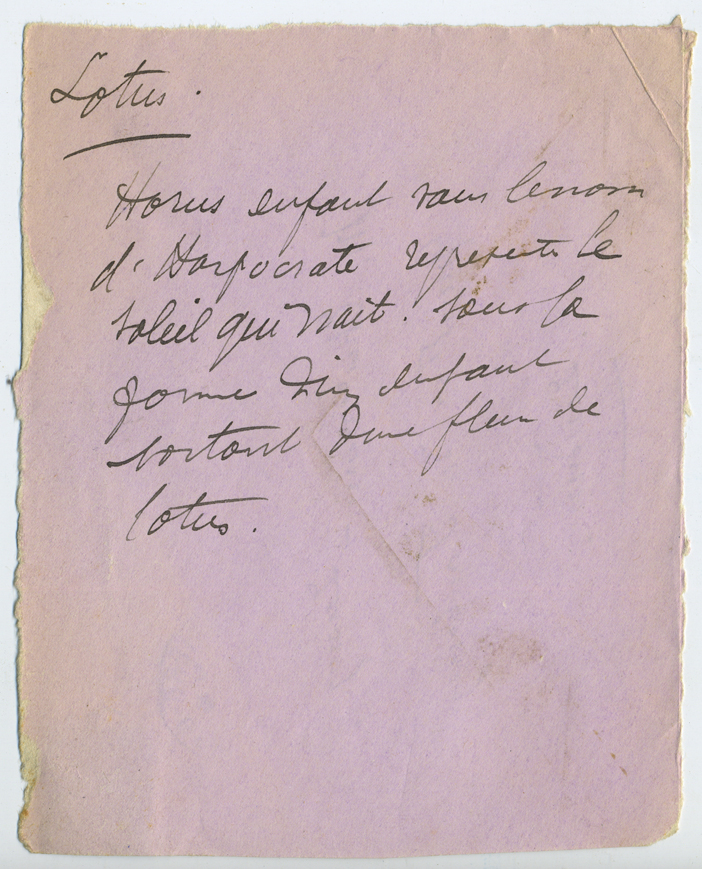 Lotus.
Horus enfant sous le nom
d'Harpocrate represente le
soleil qui nait. sous la
forme d'un enfant
sortant d'une fleur de
lotus.